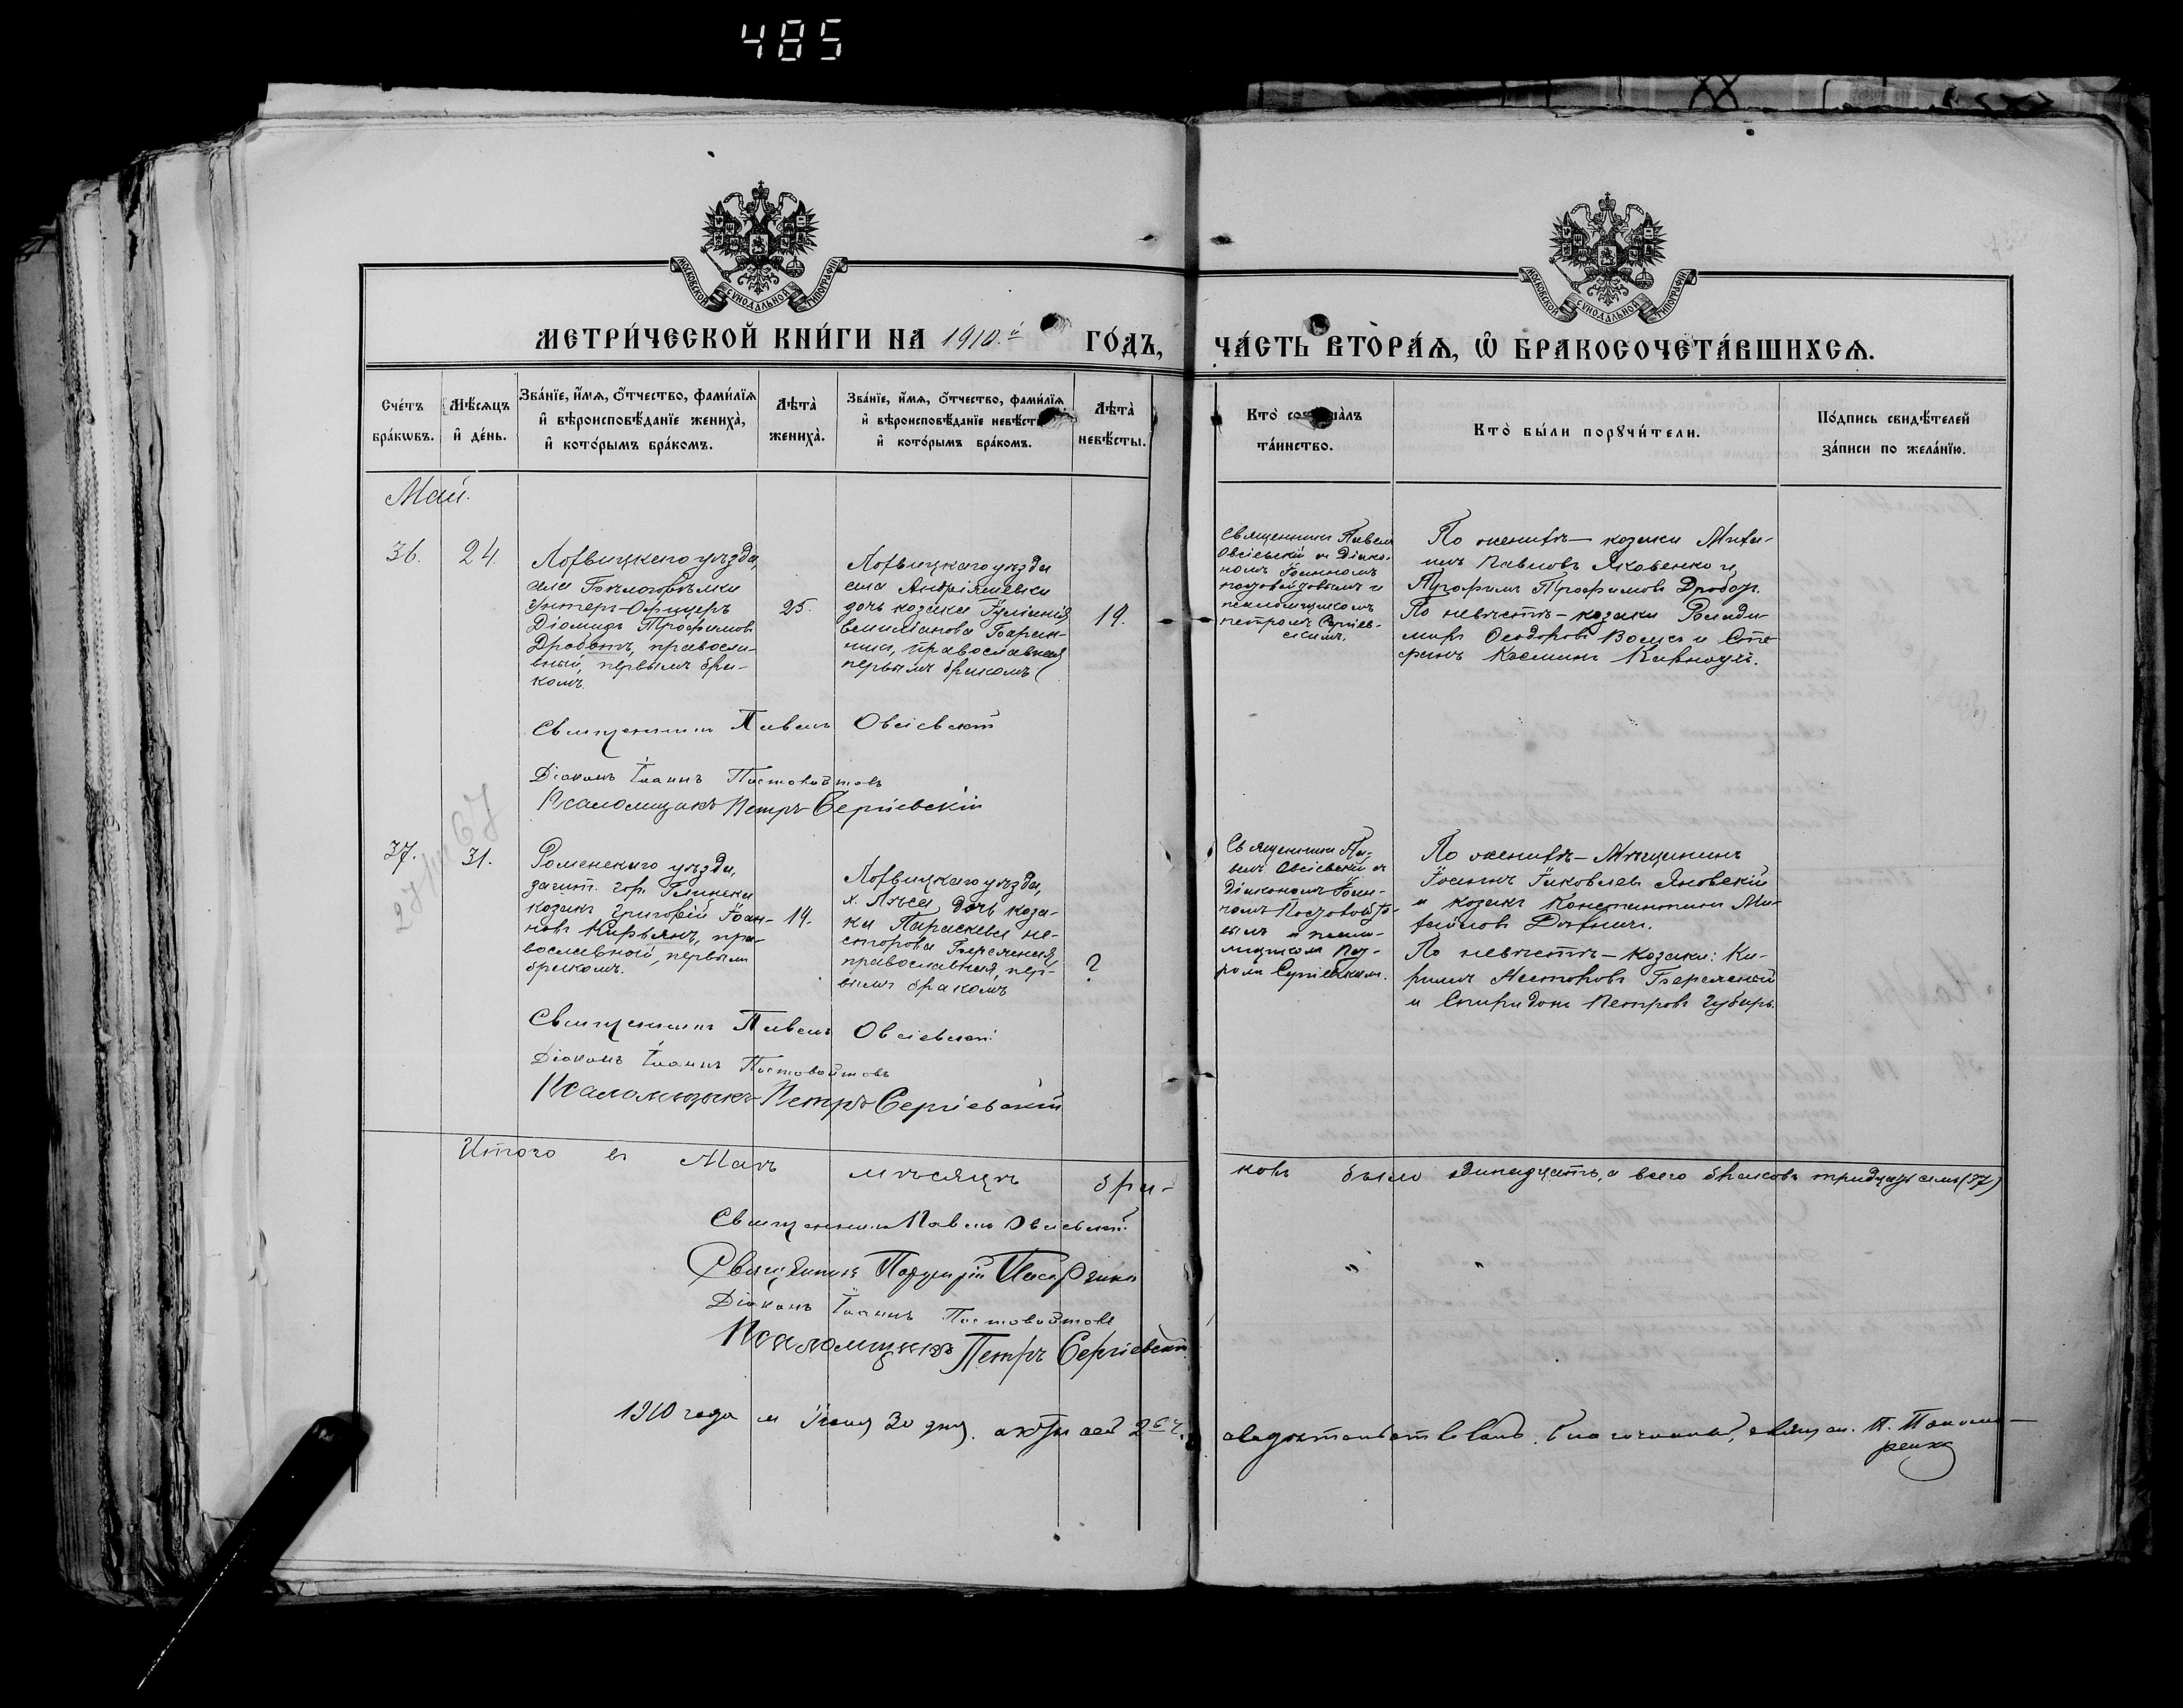 485
МОСКОВСКОЙ СѴНОДАЛЬНОЙ ТИПОГРАФІИ
МОСКОВСКОЙ СѴНОДАЛЬНОЙ ТИПОГРАФІИ
МЕТРИ́ЧЕСКОЙ КНИ́ГИ НА 1910.й ГО́ДЪ,
ЧА́СТЬ ВТОРА́Ѧ, Ѡ҆ БРАКОСОЧЕТА́ВШИХСѦ.
Сче́тъ
бра́кѡвъ.
Мѣ́сѧцъ
и҆ де́нь.
Зва́нїе, и҆́мѧ, ѻ҆́тчество, фами́лїѧ
и҆ вѣроисповѣ́данїе жениха̀,
и҆ кото́рымъ бра́комъ.
Лѣта̀
жениха̀.
Зва́нїе, и҆́мѧ, ѻ҆́тчество, фами́лїѧ
и҆ вѣроисповѣ́данїе невѣ́сты
и҆ кото́рымъ бра́комъ.
Лѣта̀
невѣ́сты.
Кто̀
та́инство.
Кто̀ бы́ли порꙋчи́тели.
По́дпись свидѣ́телей
за́писи по жела́нїю.
Май.
36.
24.
Лохвицкаго уѣзда,
села
Унтеръ-Офицеръ
Діомидъ Трофимовъ
Дроботъ, правосла-
вный, первымъ бра-
комъ.
25.
Лохвицкаго уѣзда
села Андріяшевки
дочь козака Іуліанія
православная
первымъ бракомъ
19.
Священникъ Павелъ
Овсіевскій и Діако-
номъ Іоанномъ
Постовойтовымъ и
псаломщикомъ
Петромъ Сергіев-
скимъ.
По женихѣ — козаки Миха-
илъ Павловъ Яковенко и
Трофимъ Трофимовъ Дроботъ.
По невѣстѣ — козаки Влади-
миръ Ѳеодоровъ и Сте-
фанъ
Священникъ Павелъ Овсіевскій
Діаконъ Іоаннъ Постовойтовъ
Псаломщикъ Петръ Сергіевскій
37.
31.
Роменскаго уѣзда,
заштт. гор. Глинска
козакъ Григорій Іоан-
новъ Кирьянъ, пра-
вославный, первымъ
бракомъ.
19.
Лохвицкаго уѣзда,
х. Ляься дочь коза-
ка Параскева Не-
сторова
православная, пер-
вымъ бракомъ
?
Священникъ Па-
велъ Овсіевскій и
діакономъ Іоан-
номъ Постовойто-
вымъ и псало-
мщикомъ Пет-
ромъ Сергіевскимъ.
По женихѣ — Мѣщанинъ
Іоаннъ Іаковлевъ Яновскій
и козакъ Константинъ Ми-
хайловъ
По невѣстѣ — козаки: Ки-
риллъ Несторовъ
и Спиридонъ Петровъ Губарь.
Священникъ Павелъ Овсіевскій
Діаконъ Іоаннъ Постовойтовъ
Псаломщикъ Петръ Сергіевскій
Итого въ Маѣ мѣсяцѣ бра-
ковъ было одинадцать, а всего браковъ тридцать семь (37)
Священникъ Павелъ Овсіевскій
Священникъ
Діаконъ Іоаннъ Постовойтовъ
Псаломщикъ Петръ Сергіевскій
1910 года Іюня 30 дня.
свидѣтельствовалъ. Благочинный, священ. П. Пономаренко